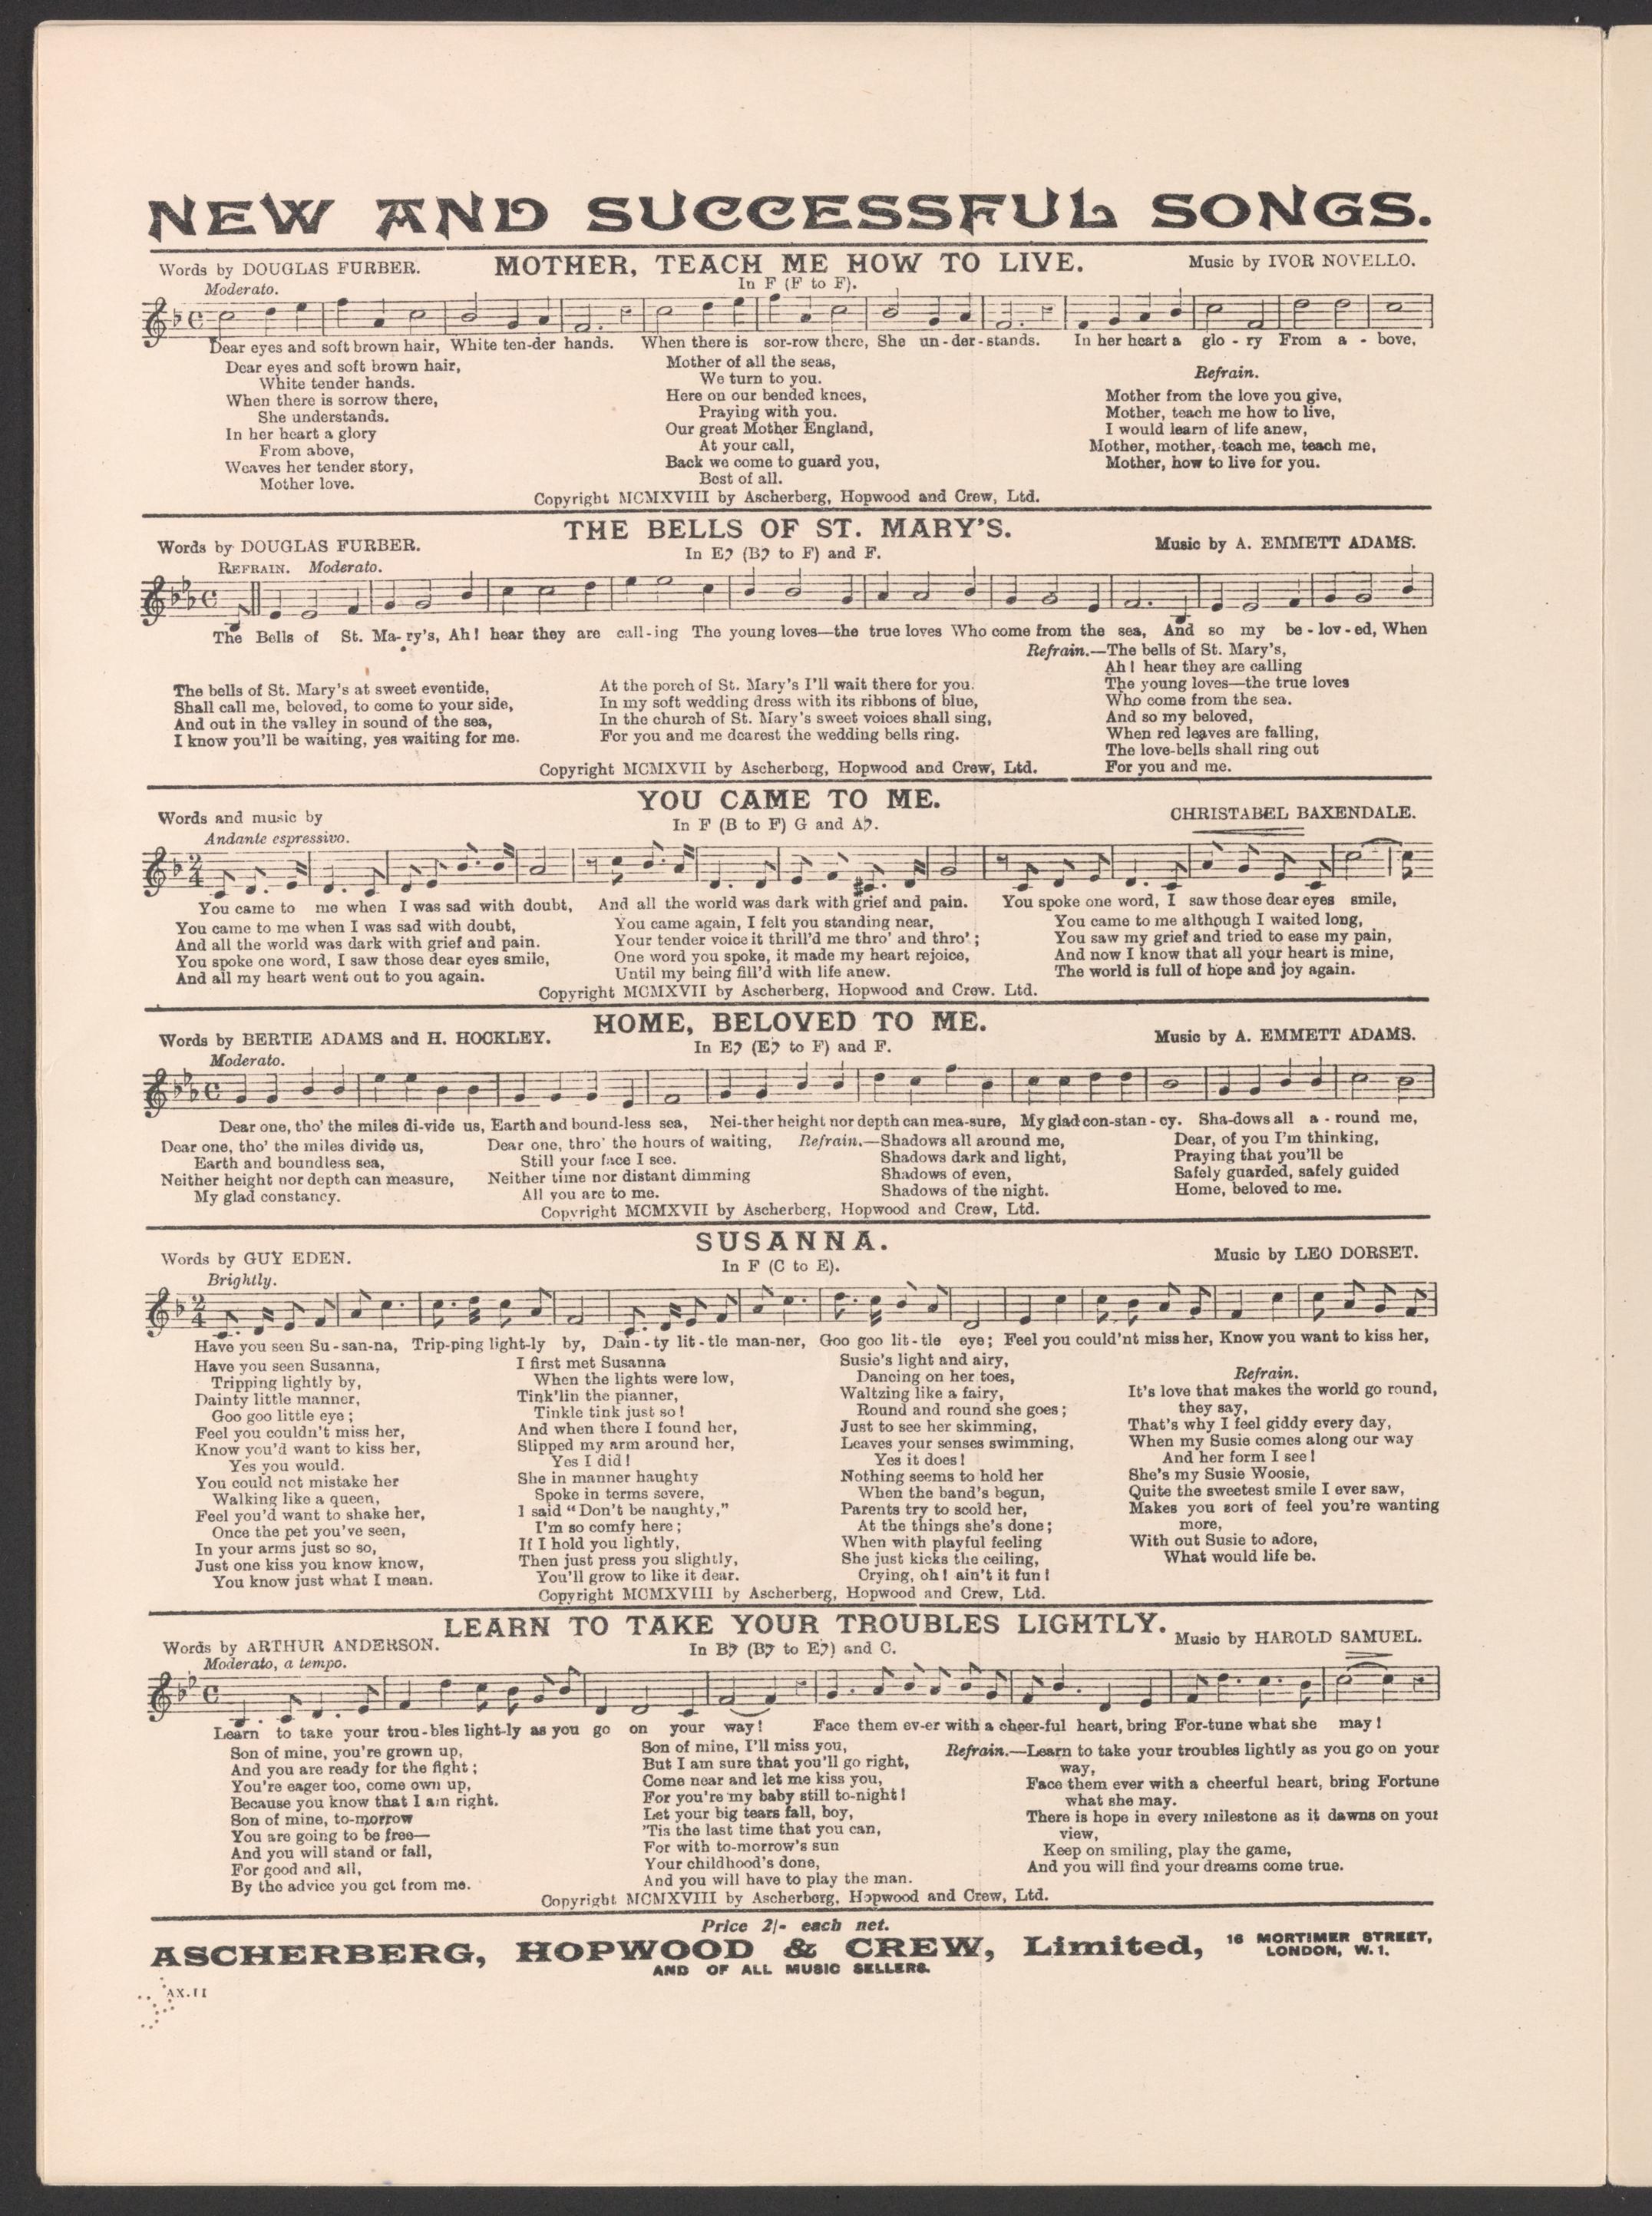 NEW AND SUCCESSFUL SONGS.
Words by DOUGLAS FURBER. MOTHER, TEACH ME HOW TO LIVE. Music by IVOR NOVELLO.
Moderato. In F (F to F).
Dear eyes and soft brown hair, White ten-der hands. When there is sor-row there, She un-der-stands. In her heart a glo-ry From a-bove,
Dear eyes and soft brown hair,
White tender hands.
When there is sorrow there,
She understands.
In her heart a glory
From above,
Weaves her tender story,
Mother love.
Mother of all the seas,
We turn to you.
Here on our bended knees,
Praying with you.
Our great Mother England,
At your call,
Back we come to guard you,
Best of all.
Refrain.
Mother from the love you give,
Mother, teach me how to live,
I would learn of life anew,
Mother, mother, teach me, teach me,
Mother, how to live for you.
Copyright MCMXVIII by Ascherberg, Hopwood and Crew, Ltd.
THE BELLS OF ST. MARY'S.
Words by DOUGLAS FURBER. In E♭ (B♭ to F) and F. Music by A. EMMETT ADAMS.
REFRAIN. Moderato.
The Bells of St. Ma-ry's, Ah! hear they are call-ing The young loves—the true loves Who come from the sea, And so my be-lov-ed, When
The bells of St. Mary's at sweet eventide,
Shall call me, beloved, to come to your side,
And out in the valley in sound of the sea,
I know you'll be waiting, yes waiting for me.
At the porch of St. Mary's I'll wait there for you.
In my soft wedding dress with its ribbons of blue,
In the church of St. Mary's sweet voices shall sing,
For you and me dearest the wedding bells ring.
Refrain.—The bells of St. Mary's,
Ah! hear they are calling
The young loves—the true loves
Who come from the sea.
And so my beloved,
When red leaves are falling,
The love-bells shall ring out
For you and me.
Copyright MCMXVII by Ascherberg, Hopwood and Crew, Ltd.
YOU CAME TO ME.
Words and music by In F (B to F) G and A♭. CHRISTABEL BAXENDALE.
Andante espressivo.
You came to me when I was sad with doubt, And all the world was dark with grief and pain. You spoke one word, I saw those dear eyes smile,
You came to me when I was sad with doubt,
And all the world was dark with grief and pain.
You spoke one word, I saw those dear eyes smile,
And all my heart went out to you again.
You came again, I felt you standing near,
Your tender voice it thrill'd me thro' and thro';
One word you spoke, it made my heart rejoice,
Until my being fill'd with life anew.
You came to me although I waited long,
You saw my grief and tried to ease my pain,
And now I know that all your heart is mine,
The world is full of hope and joy again.
Copyright MCMXVII by Ascherberg, Hopwood and Crew. Ltd.
HOME, BELOVED TO ME.
Words by BERTIE ADAMS and H. HOCKLEY. In E♭ (E♭ to F) and F. Music by A. EMMETT ADAMS.
Moderato.
Dear one, tho' the miles di-vide us, Earth and bound-less sea, Nei-ther height nor depth can mea-sure, My glad con-stan-cy. Sha-dows all a-round me,
Dear one, tho' the miles divide us,
Earth and boundless sea,
Neither height nor depth can measure,
My glad constancy.
Dear one, thro' the hours of waiting,
Still your face I see.
Neither time nor distant dimming
All you are to me.
Refrain.—Shadows all around me,
Shadows dark and light,
Shadows of even,
Shadows of the night.
Dear, of you I'm thinking,
Praying that you'll be
Safely guarded, safely guided
Home, beloved to me.
Copyright MCMXVII by Ascherberg, Hopwood and Crew, Ltd.
SUSANNA.
Words by GUY EDEN. In F (C to E). Music by LEO DORSET.
Brightly.
Have you seen Su-san-na, Trip-ping light-ly by, Dain-ty lit-tle man-ner, Goo goo lit-tle eye; Feel you could'nt miss her, Know you want to kiss her,
Have you seen Susanna,
Tripping lightly by,
Dainty little manner,
Goo goo little eye;
Feel you couldn't miss her,
Know you'd want to kiss her,
Yes you would.
You could not mistake her
Walking like a queen,
Feel you'd want to shake her,
Once the pet you've seen,
In your arms just so so,
Just one kiss you know know,
You know just what I mean.
I first met Susanna
When the lights were low,
Tink'lin the pianner,
Tinkle tink just so!
And when there I found her,
Slipped my arm around her,
Yes I did!
She in manner haughty
Spoke in terms severe,
I said "Don't be naughty,"
I'm so comfy here;
If I hold you lightly,
Then just press you slightly,
You'll grow to like it dear.
Susie's light and airy,
Dancing on her toes,
Waltzing like a fairy,
Round and round she goes;
Just to see her skimming,
Leaves your senses swimming,
Yes it does!
Nothing seems to hold her
When the band's begun,
Parents try to scold her,
At the things she's done;
When with playful feeling
She just kicks the ceiling,
Crying, oh! ain't it fun!
Refrain.
It's love that makes the world go round,
they say,
That's why I feel giddy every day,
When my Susie comes along our way
And her form I see!
She's my Susie Woosie,
Quite the sweetest smile I ever saw,
Makes you sort of feel you're wanting
more,
With out Susie to adore,
What would life be.
Copyright MCMXVIII by Ascherberg, Hopwood and Crew, Ltd.
LEARN TO TAKE YOUR TROUBLES LIGHTLY.
Words by ARTHUR ANDERSON. In B♭ (B♭ to E♭) and C. Music by HAROLD SAMUEL.
Moderato, a tempo.
Learn to take your trou-bles light-ly as you go on your way! Face them ev-er with a cheer-ful heart, bring For-tune what she may!
Son of mine, you're grown up,
And you are ready for the fight;
You're eager too, come own up,
Because you know that I am right.
Son of mine, to-morrow
You are going to be free—
And you will stand or fall,
For good and all,
By the advice you get from me.
Son of mine, I'll miss you,
But I am sure that you'll go right,
Come near and let me kiss you,
For you're my baby still to-night!
Let your big tears fall, boy,
'Tis the last time that you can,
For with to-morrow's sun
Your childhood's done,
And you will have to play the man.
Refrain.—Learn to take your troubles lightly as you go on your
way,
Face them ever with a cheerful heart, bring Fortune
what she may.
There is hope in every milestone as it dawns on your
view,
Keep on smiling, play the game,
And you will find your dreams come true.
Copyright MCMXVIII by Ascherberg, Hopwood and Crew, Ltd.
Price 2/- each net.
ASCHERBERG, HOPWOOD & CREW, Limited, 16 MORTIMER STREET,
LONDON, W.1.
AND OF ALL MUSIC SELLERS.
AX.11